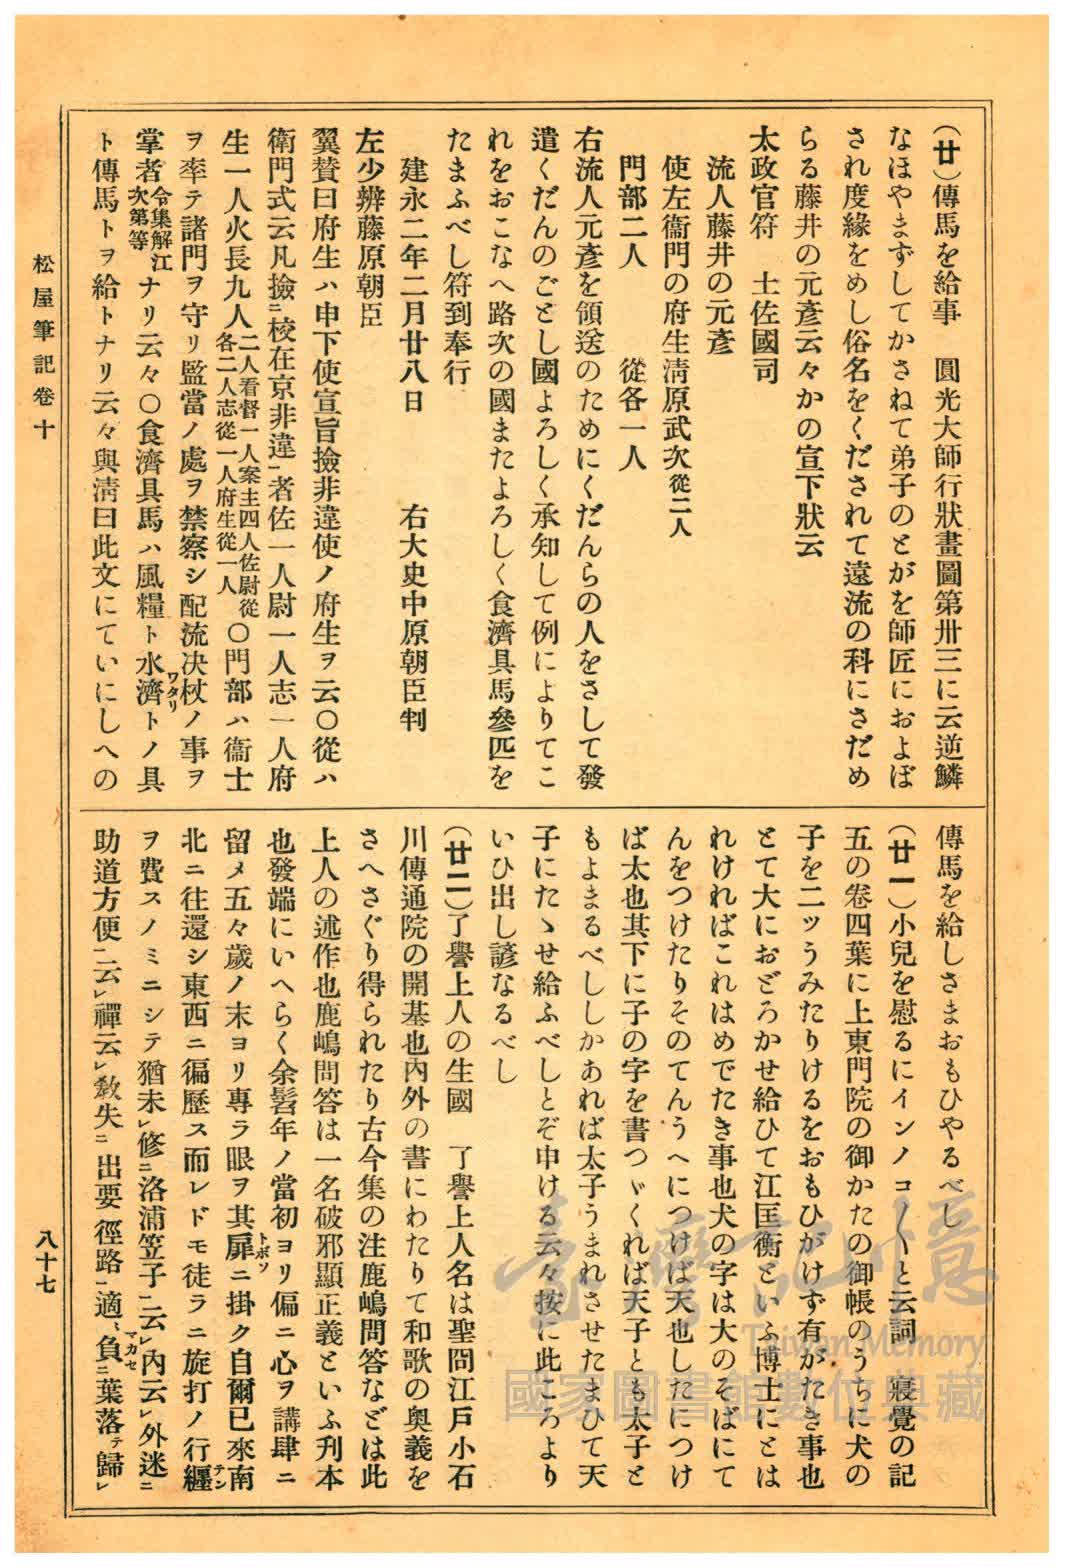 (廿)傳馬を給事　圓光大師行狀畫圖第卅三に云逆鱗
なほやまずしてかさねて弟子のとがを師匠におよぼ
され度緣をめし俗名をくだされて遠流の科にさだめ
らる藤井の元彥云々かの宣下狀云
太政官符　土佐國司
流人藤井の元彥
使左衞門の府生淸原武次從二人
門部二人　　從各一人
右流人元彥を領送のためにくだんらの人をさして發
遣くだんのごとし國よろしく承知して例によりてこ
れをおこなへ路次の國またよろしく食濟具馬叄匹を
たまふべし符到奉行
建永二年二月廿八日　　右大史中原朝臣判
左少辨藤原朝臣
翼贊曰府生ハ申下使宣旨撿非違使ノ府生ヲ云〇從ハ
衞門式云凡撿ニ校在京非違一者佐一人尉一人志一人府
生一人火長九人二人看督一人案主四人佐尉從各二人志從一人府生從一人〇門部ハ衞士
ヲ率テ諸門ヲ守リ監當ノ處ヲ禁察シ配流決杖ノ事ヲ
掌者令集解江次第等ナリ云々〇食濟具馬ハ風糧ト水濟ワタリトノ具
ト傳馬トヲ給トナリ云々與淸曰此文にていにしへの
傳馬を給しさまおもひやるべし
(廿一)小兒を慰るにインノコ〳〵と云詞　寢覺の記
五の卷四葉に上東門院の御かたの御帳のうちに犬の
子を二ツうみたりけるをおもひがけず有がたき事也
とて大におどろかせ給ひて江匡衡といふ博士にとは
れければこれはめでたき事也犬の字は大のそばにて
んをつけたりそのてんうへにつけば天也したにつけ
ば太也其下に子の字を書つゞくれば天子とも太子と
もよまるべししかあれば太子うまれさせたまひて天
子にたゝせ給ふべしとぞ申ける云々按に此ころより
いひ出し諺なるべし
(廿二)了譽上人の生國　了譽上人名は聖冏江戸小石
川傳通院の開基也內外の書にわたりて和歌の奧義を
さへさぐり得られたり古今集の注鹿嶋問答などは此
上人の述作也鹿嶋問答は一名破邪顯正義といふ刋本
也發端にいへらく余髫年ノ當初ヨリ偏ニ心ヲ講肆ニ
留メ五々歲ノ末ヨリ專ラ眼ヲ其扉トボソニ掛ク自爾已來南
北ニ往還シ東西ニ徧歷ス而レドモ徒ラニ旋打ノ行纒テン
ヲ費スノミニシテ猶未レ修ニ洛浦笠子一云レ內云レ外迷ニ
助道方便一云レ禪云レ敎失ニ出要徑路一適〻負マカセニ葉落テ歸レ
松屋筆記卷十
八十七
臺灣記憶
Taiwan Memory
國家圖書館數位典藏